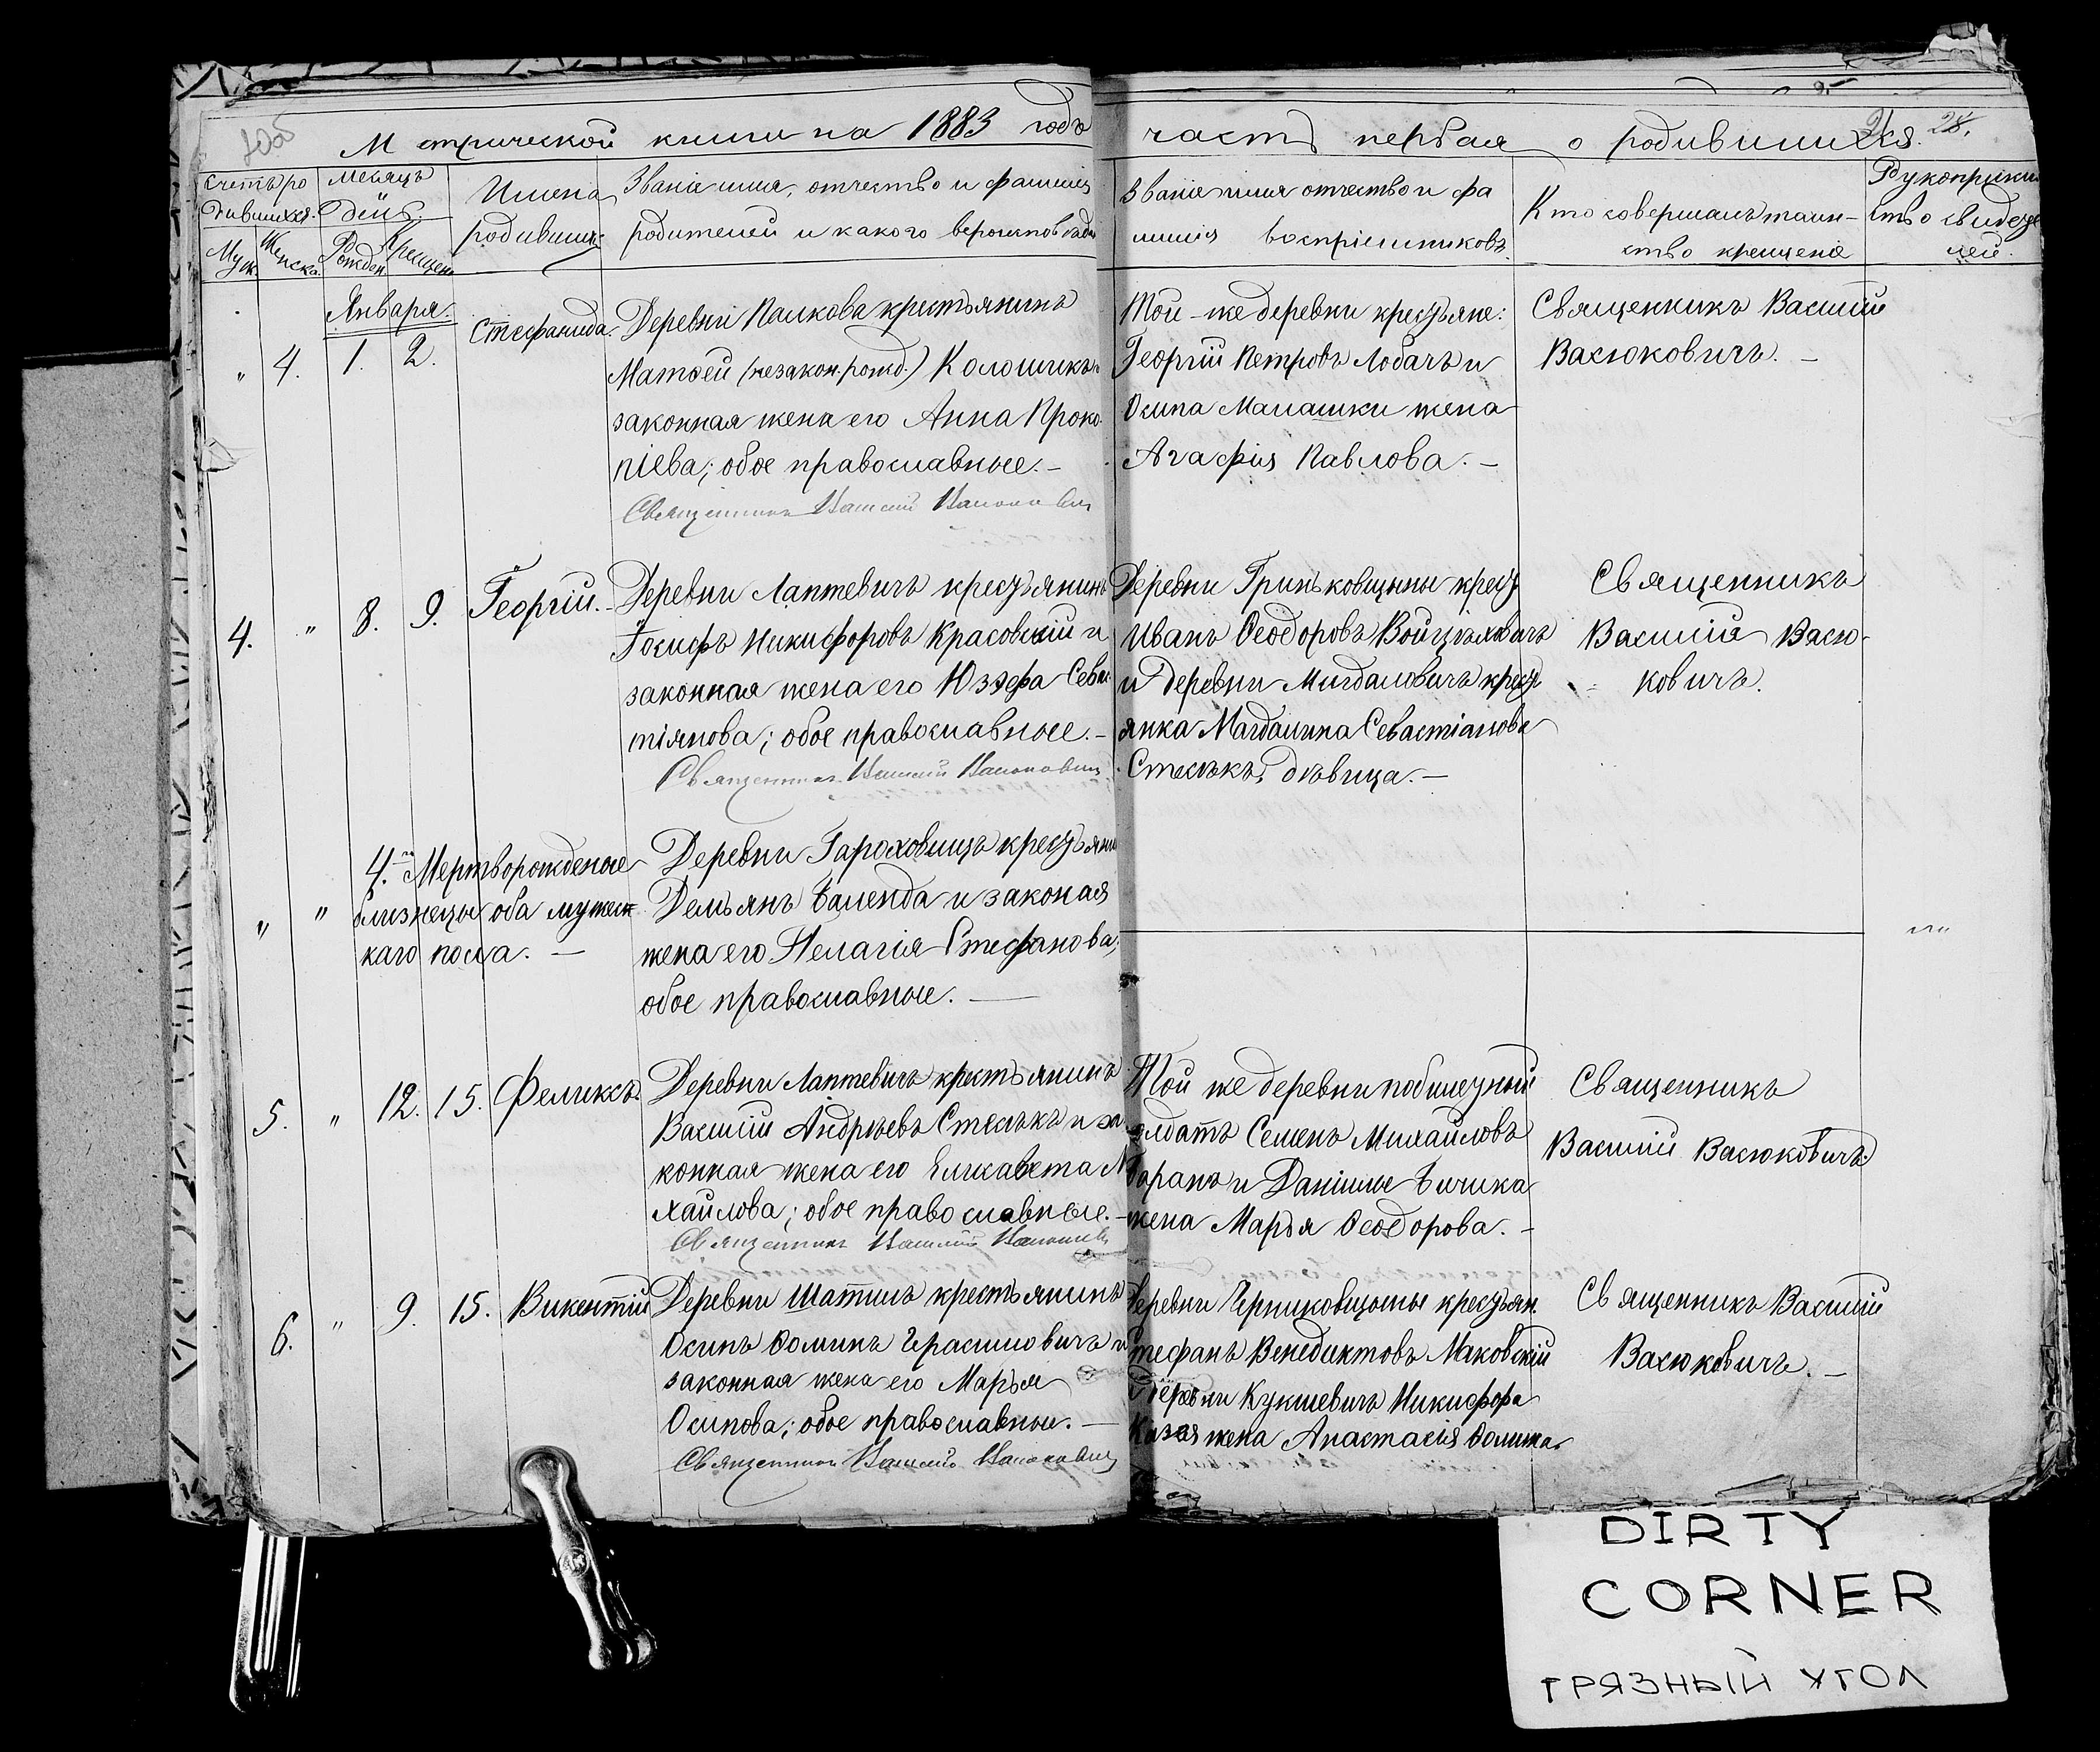 Метрической книги на 1883 годъ
часть первая о родившихся. 28.
Счетъ ро
дившихся.
Муж. Женска.
Месяцъ
день.
Рожден. Крещен.
Имена
родивших.
Званіе имя, отчество и фамилія
родителей и какого вероисповеда
Званіе имя отчество и фа
милія воспріемниковъ.
Кто совершалъ таин-
ство крещенія
Рукоприкл
ство свидете
лей.
Января.
" 4. 1. 2. Стефанида.
Деревни Палкова крестьянинъ
Матѳей (незакон. рожд.) Колошикъ и
законная жена его Анна Проко
піева; обое православные. –
Священникъ Василій Васюкович
Той-же деревни крестьяне:
Георгій Петровъ Лобачъ и
Осипа Малашки жена
Агафія Павлова. –
Священникъ Василій
Васюковичъ. –
4. " 8. 9. Георгій. –
Деревни Лаптевичъ крестьянинъ
Іосифъ Никифоровъ Красовскій и
законная жена его Юзэфа Севас
тіянова; обое православные. –
Священникъ Василій Васюкович
Деревни Гриньковщины крест
Иванъ Ѳеодоровъ Войцѣховичъ
и деревни Мигдаловичъ крест
янка Магдалина Севастіанова
Стеслѣкъ, дѣвица. –
Священникъ
Василій Васю-
ковичъ.
" " 4. Мертворожденые
близнецы оба мужес
каго пола. –
Деревни Гароховищъ крестьяни
Демьянъ Баленда и законая
жена его Пелагія Стефанова;
обое православные. –
5. " 12. 15. Феликсъ.
Деревни Лаптевичъ крестьянинъ
Василій Андрѣевъ Стеслѣкъ и за
конная жена его Елисавета М
хайлова; обое православные. –
Священникъ Василій Васюкович
Той же деревни побилетный
солдатъ Семенъ Михайловъ
Баранъ и Даніилы Бичика
жена Марья Ѳеодорова. –
Священникъ
Василій Васюковичъ.
6. " 9. 15. Викентій
Деревни Шатилъ крестьянинъ
Осипъ Ѳоминъ Герасимовичъ и
законная жена его Марья
Осипова; обое православные. –
Священникъ Василій Васюкович
Деревни Черниковщины крестьян.
Стефанъ Венедиктовъ Маковскій
Деревни Кукшевичъ Никифора
жена Анастасія Ѳомина
Священникъ Василій
Васюковичъ. –
DIRTY
CORNER
ГРЯЗНЫЙ УГОЛ